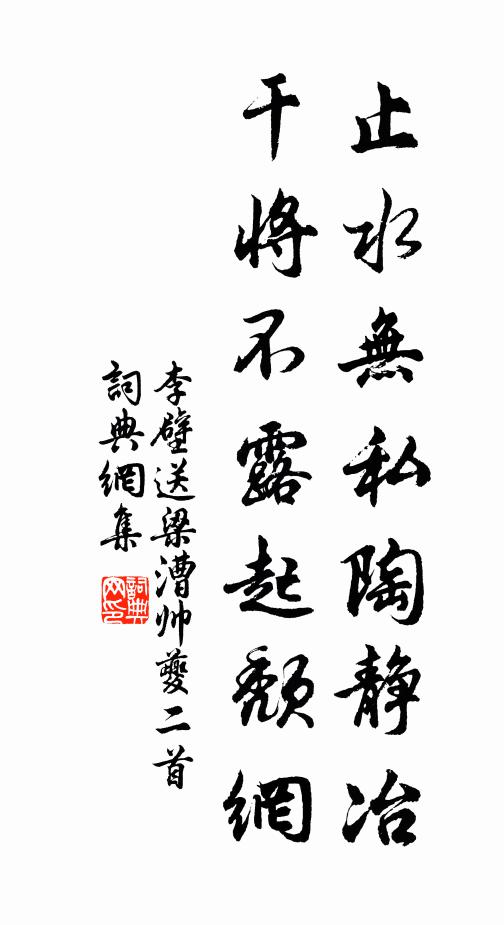 止水無私陶静冶
干將不露起頹網
李壁送梁漕帅夔二首
詞典網集
詞典網印